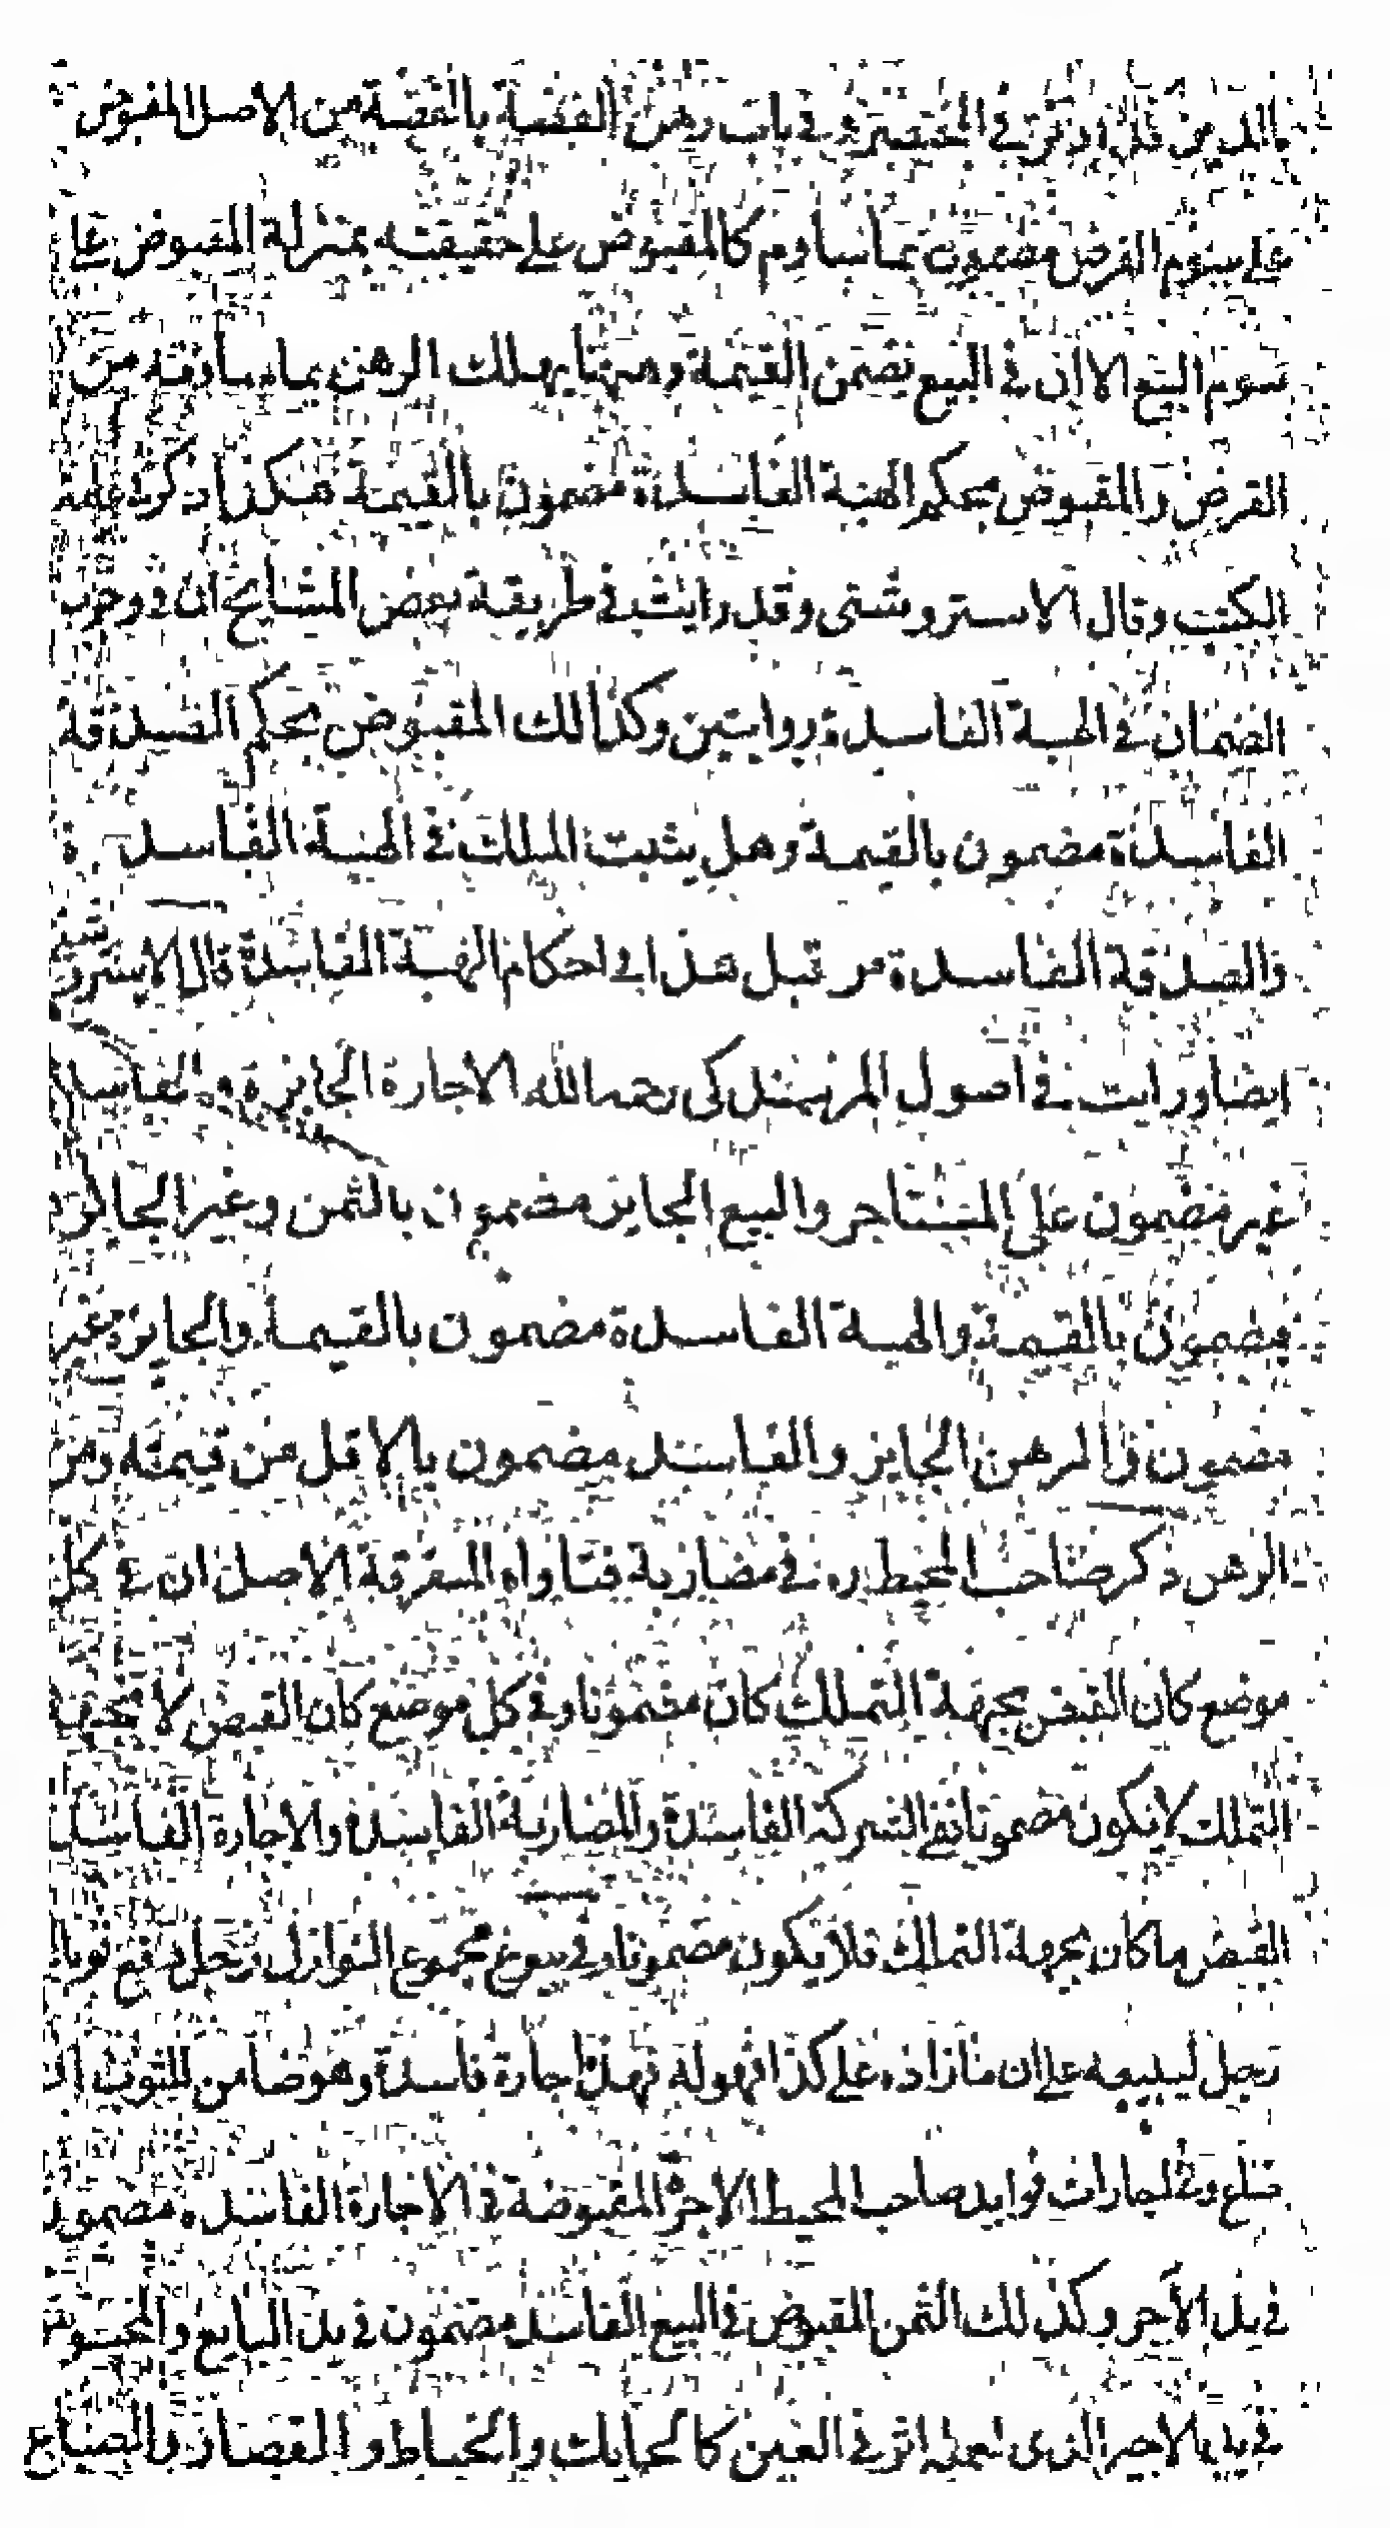 بالدين قلل اذكر في المختصر و في باب رهن الفضة بالفضة من الاصل المقبوض
على سوم القرض مضمون بما ساوم كالمقبوض على حقيقته بمنزلة المقبوض على
سوم البيع الا ان في البيع تضمن القيمة وههنا يهلك الرهن بما ساومه من
القرض والمقبوض بحكم الهبة الفاسدة مضمون بالقيمة هكذا ذكر في عامة
الكتب وقال الاستروشنى وقد رايت في طريقة بعض المشايخ ان في وجوب
الضمان في الهبة الفاسدة روايتين وكذالك المقبوض بحكم الصدقة
الفاسدة مضمون بالقيمة وهل يثبت الملك في الهبة الفاسدة
والصدقة الفاسدة مر قبل هذا في احكام الهبة الفاسدة قال الاستروشنى
ايضا ورايت في اصول المرسمندكى رحمه الله الاجارة الجايزة والفاسدة
غير مضمون على المستاجر والبيع الجايز مضمون بالثمن وغير الجايز
مضمون بالقيمة والهبة الفاسدة مضمون بالقيمة والجايزة غير
مضمون والرهن الجايز والفاسد مضمون بالاقل من قيمته ومن
الرهن ذكر صاحب المحيط ره في مضاربة فتاواه المتفرقة الاصل ان في كل
موضع كان القبض بجهة التملك كان مضمونا وفي كل موضع كان القبض لا بجهة
التملك لا يكون مضمونا ففي الشركة الفاسدة والمضاربة الفاسدة والاجارة الفاسدة
القبض ما كان بجهة التملك فلا يكون مضمونا وفي بيوع مجموع النوازل رجل دفع ثوبا الى
رجل ليبيعه على ان ما زاده على كذا فهو له فهذا اجارة فاسدة وهو ضامن للثوب ان
ضاع وفي اجارات فوايد صاحب المحيط الاجرة المقبوضة في الاجارة الفاسدة مضمون
في يد الآجر وكذلك الثمن المقبوض في البيع الفاسد مضمون في يد البايع والمحبوس
في يد الاجير الذى لعمله اثر في العين كالحايك والخياط والقصار والصباغ